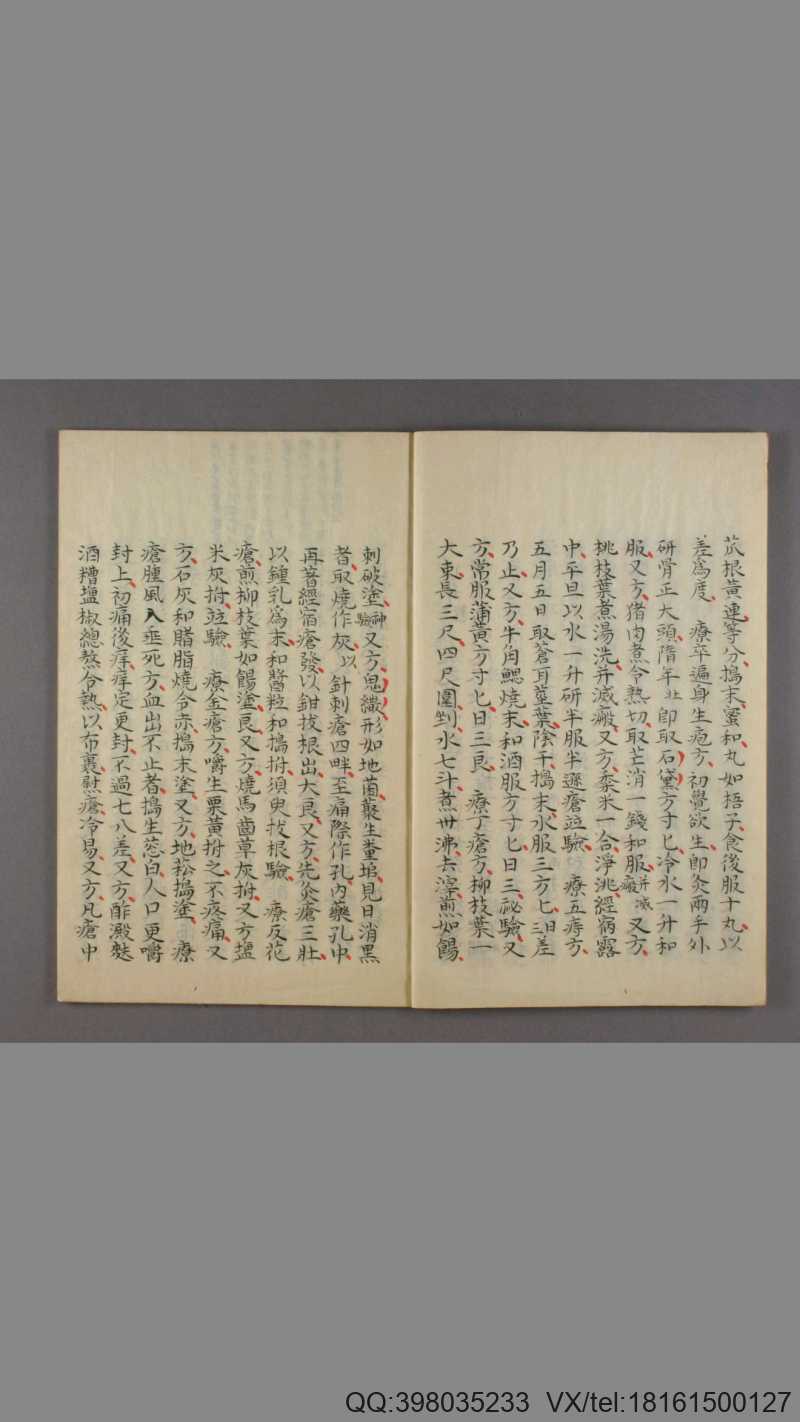 苽根黃連等分搗末蜜和丸如梧子食後服十丸以
差為度 療卒遍身生疱方初覺欲生即灸兩手外
研骨正大頭隨年壯即取石黛方寸匕冷水一升和
服又方猪肉煮令熟切取芒消一錢和服并滅癜又方
桃枝葉煮湯洗并滅癜又方黍米一合淨洮經宿露
中平旦以水一升研半服半遂瘡並驗 療五痔方
五月五日取蒼耳莖葉陰干搗末水服三方匕三日差
乃止又方牛角䚡燒末和酒服方寸匕日三祕驗又
方常服蒲黃方寸匕日三良 療丁瘡方柳枝葉一
大束長三尺四尺圍剉水七斗煮卅沸去滓煎如餳
刺破塗神驗又方鬼繖形如地菌叢生糞堆見日消黑
者取燒作灰以針刺瘡四畔至痛際作孔內藥孔中
再著經宿瘡發以鉗拔根出大良又方先灸瘡三壯
以鍾乳為末和醬粒和搗拊須臾拔根驗 療反花
瘡煎柳枝葉如餳塗良又方燒馬齒草灰拊又方鹽
米灰拊並驗 療金瘡方嚼生栗黃拊之不疼痛又
方石灰和賭脂燒令赤搗末塗又方地菘搗塗 療
瘡腫風入垂死方血出不止者搗生葱白人口更嚼
封上初痛後痒痒定更封不過七八差又方酢澱麩
酒糟塩椒總熬令熱以布裹熨瘡冷易又方凡瘡中
QQ:398035233 VX/tel:18161500127